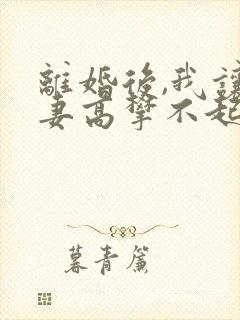 離婚後,我讓
妻高攀不起
暮青簾